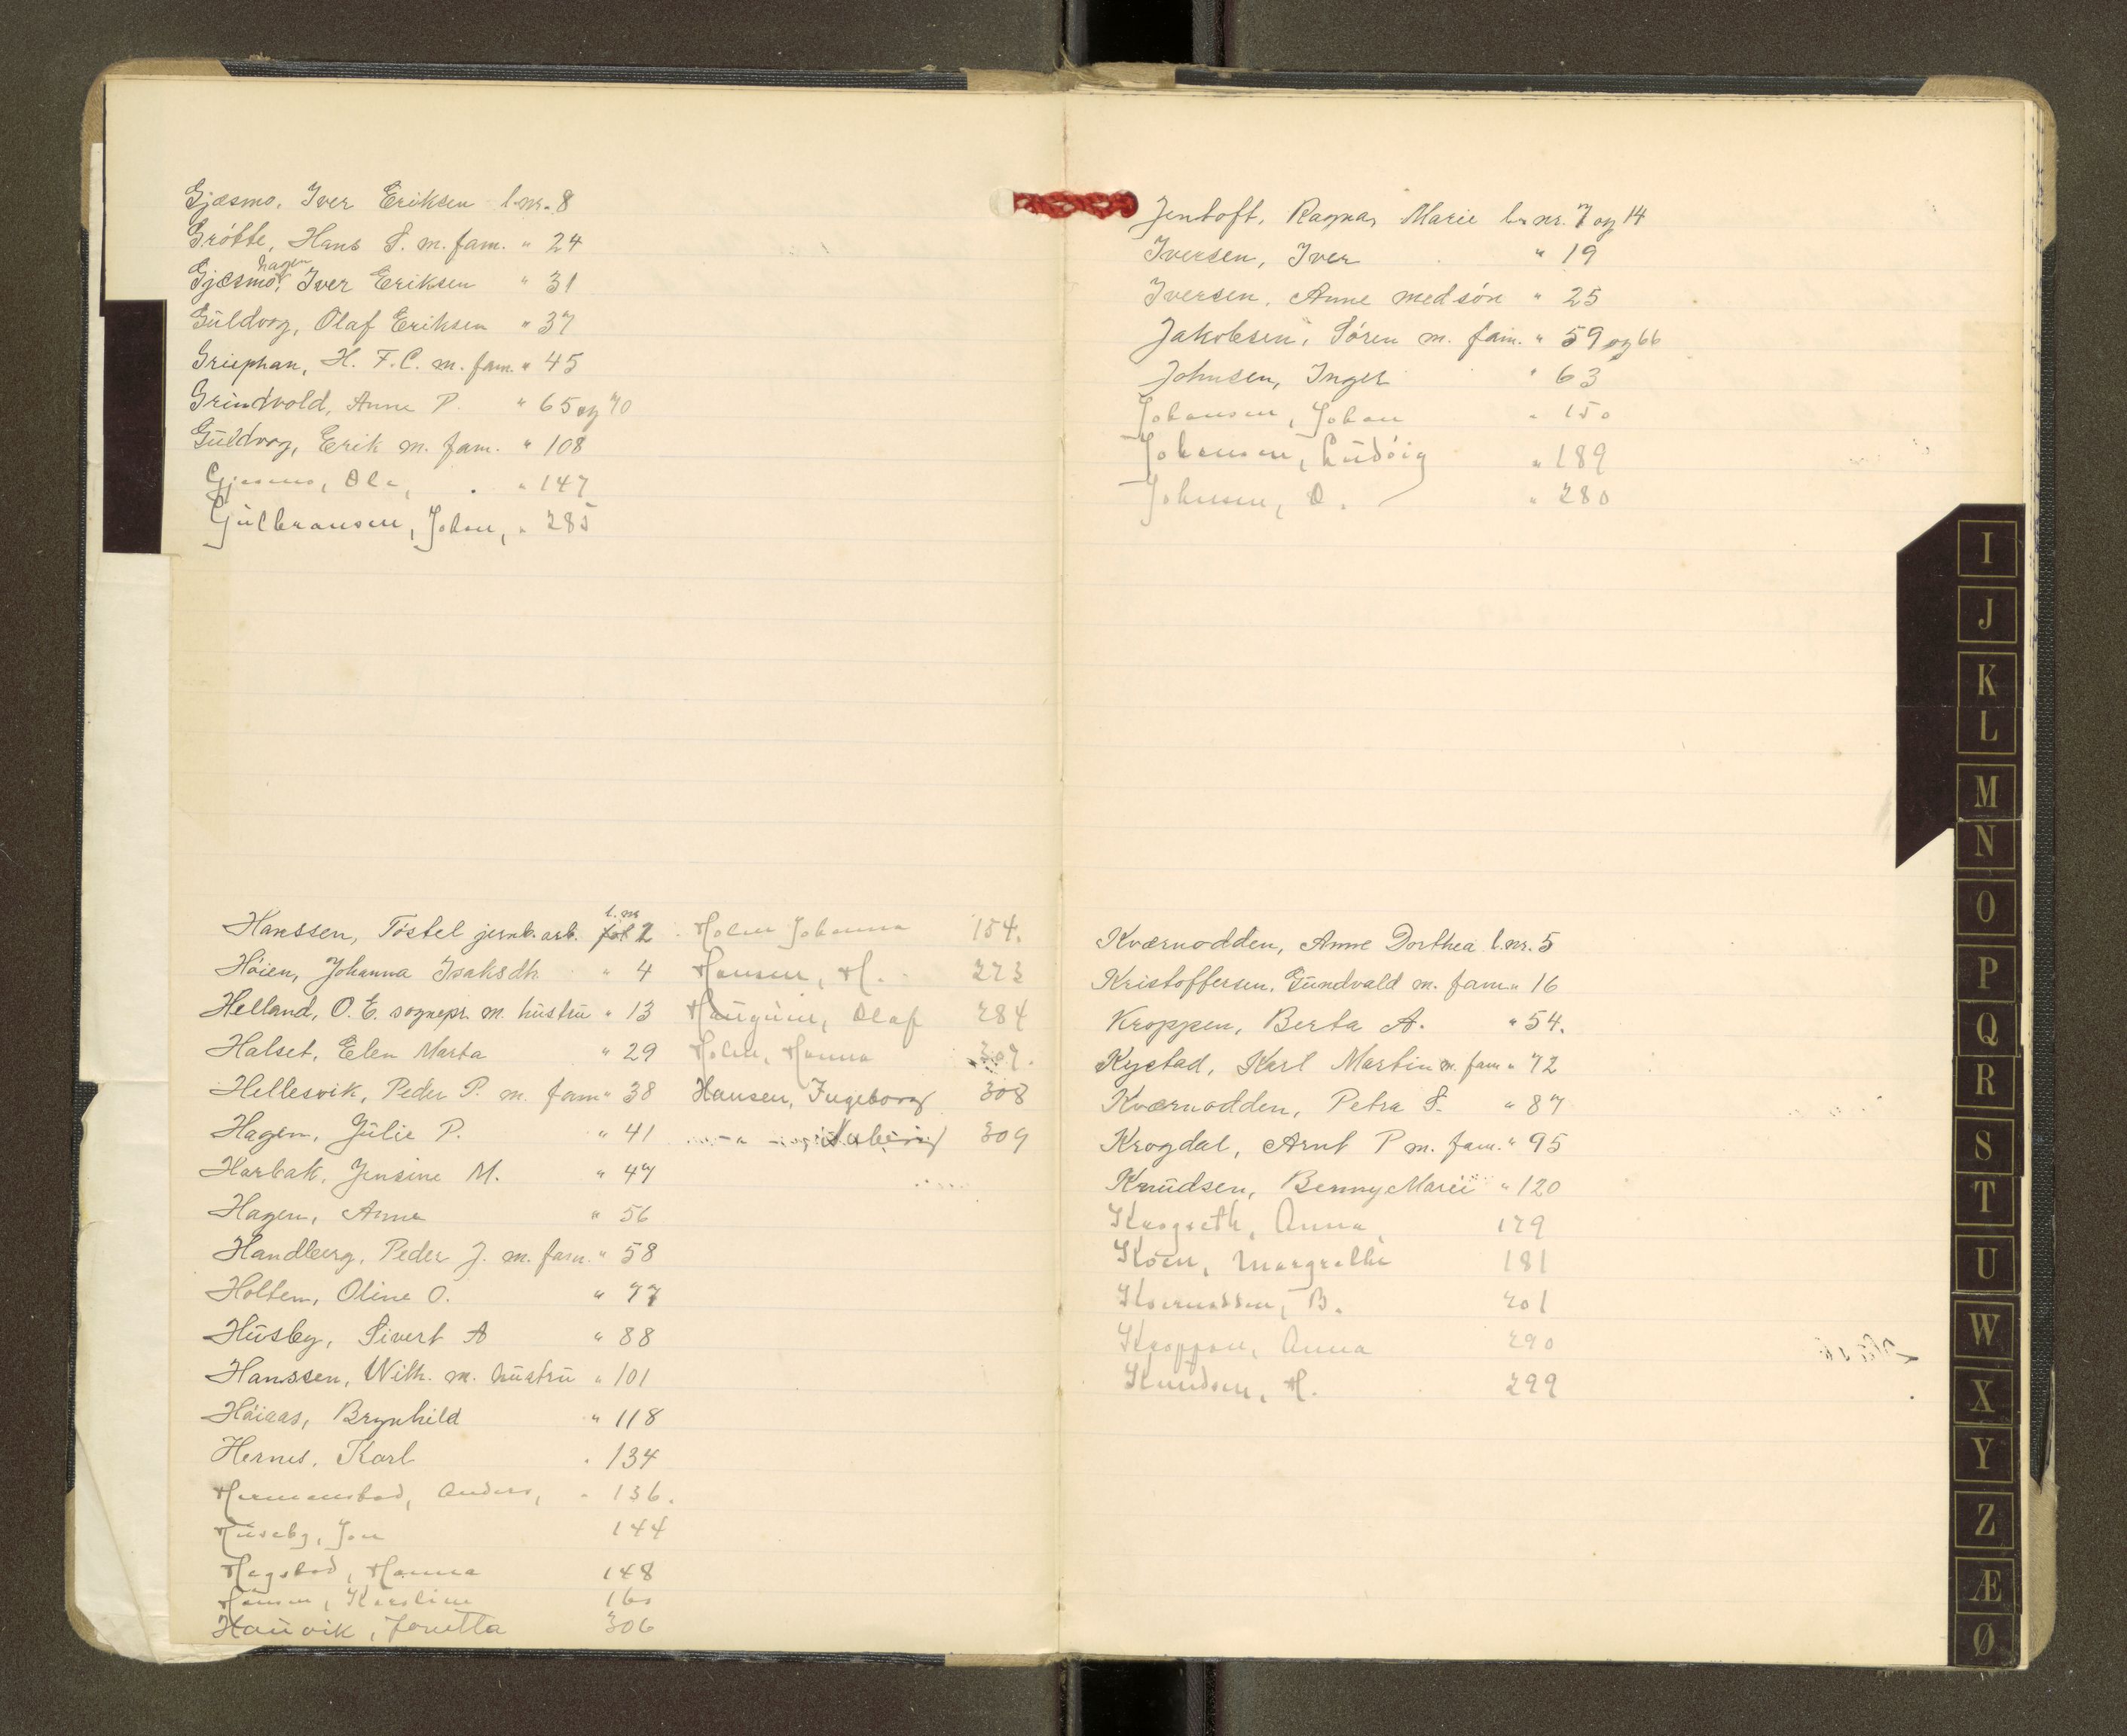 Gjæsmo, Iver Eriksen l.nr. 8
Grötte, Hans S. m. fam. " 24
hagen
Gjæsmo, Iver Eriksen " 31
Guldvog, Olaf Eriksen " 37
H. F. C. m. fam. " 45
Grindvold, Anne P. " 65 og 70
Guldvog, Erik m. fam. " 108
Gjæsmo, Ole, " 147
Gulbransen, Johan, " 285
Hanssen, Töstel jernb. arb. l. nr 2
Höien, Johanna Isaksdtr. " 4
Helland, O. E. sognepr. m. hustru " 13
Halset, Elen Marta " 29
Hellesvik, Peder P. m. fam " 38
Hagen, Julie P. " 41
Harbak, Jensine M. " 47
Hagen, Anna " 56
Handberg, Peder J. m. fam. " 58
Holten, Oline O. " 77
Husby, Sivert A " 88
Hanssen, Wilh. m. hustru " 101
Höiaas, Brynhild " 118
Hernes, Karl " 134
Hermanstad, Anders, " 136.
Huseby, Jon 144
Hagstad, Hanna 148
Hansen, Karoline 160
Hauvik, Jonetta 306
Holm Johanna 154.
Hansen, H. 273
Olaf 284
Holm, Hanna 307.
Hansen, Ingeborg 308
309
Jentoft, Ragna Marie l. nr. 7 og 14
Iversen, Iver " 19
Iversen, Anne med sön " 25
Jakobsen, Sören m. fam. " 59 og 66
Johnsen, Inger " 63
Johansen, Johan " 150
Johansen, Ludvig " 189
Johnsen, O. " 280
Kværnodden, Anne Dorthea l.nr. 5
Kristoffersen, Gundvald m. fam " 16
Kroppen, Berta A. " 54.
Kystad, Karl Martin m. fam " 72
Kværnodden, Petra S. " 87
Krogdal, Arnt P m. fam. " 95
Knudsen, Benny Marie " 120
Anna, 179
Koen, Margrethe 181
B. 201
Kroppen, Anna 290
Knudsen, H. 299
I
J
K
L
M
N
O
P
Q
R
S
T
U
W
X
Y
Z
Æ
Ø